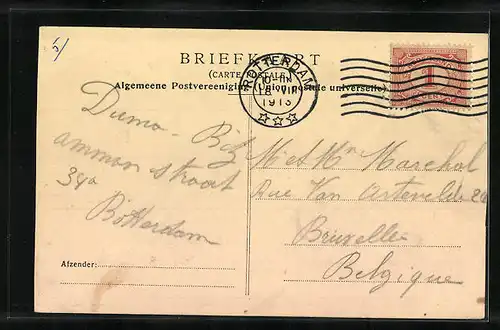 5/
BRIEFKAART
(CARTE POSTALE)
Algemeene Postvereeniging (Union postale universelle)
ROTTERDAM
1913
1
Duma - Bij
amman straat
34a
Rotterdam
M et Mme Marchal
Rue Van Artevelde
Bruxelles
Belgique
Afzender: